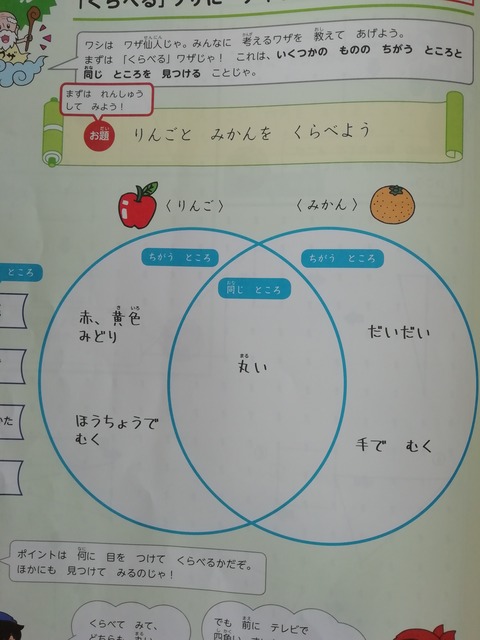 「くらべる」ワザに
ワシは ワザ仙人じゃ。みんなに 考えるワザを 教えて あげよう。
まずは 「くらべる」ワザじゃ！ これは、いくつかの ものの ちがう ところと
同じ ところを 見つける ことじゃ。
まずは れんしゅう
して みよう！
お題
りんごと みかんを くらべよう
〈りんご〉
〈みかん〉
ちがう ところ
ちがう ところ
同じ ところ
ところ
赤、黄色
みどり
だいだい
丸い
ほうちょうで
むく
手で むく
かた
ポイントは 何に 目を つけて くらべるかだぞ。
ほかにも 見つけて みるのじゃ！
くらべて みて、
どちらも
でも 前に テレビで
四角い